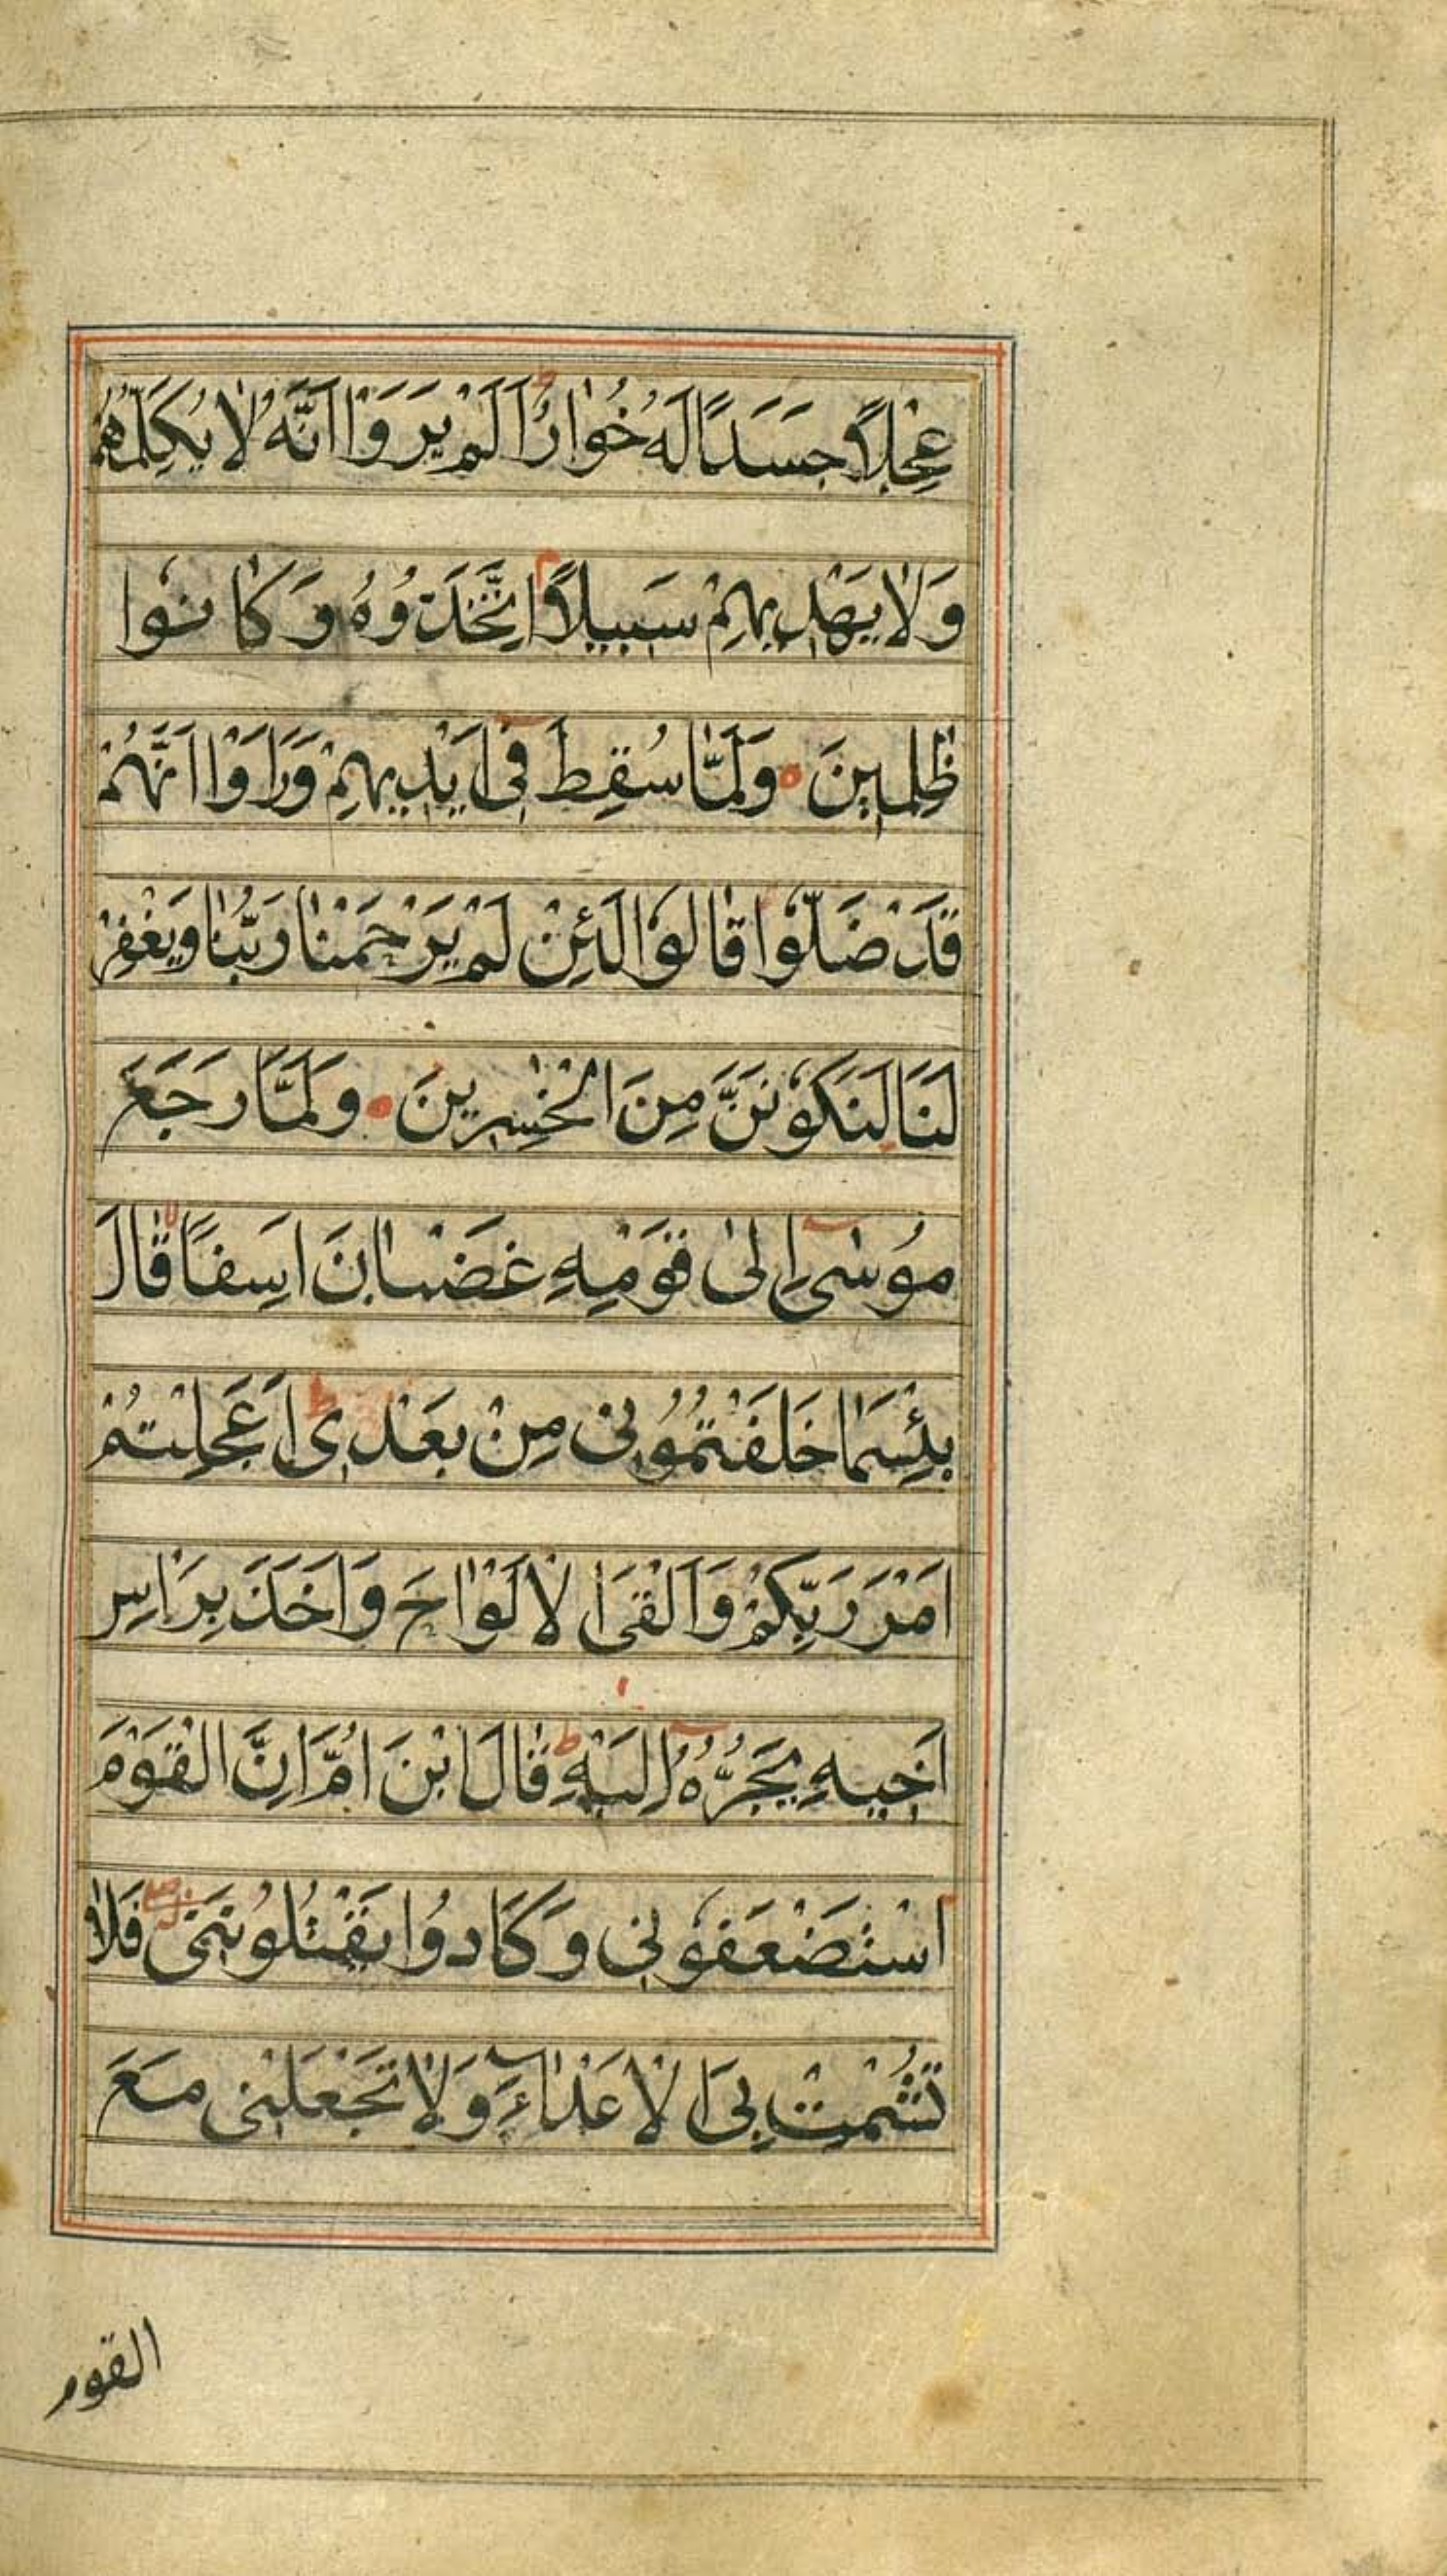 عِجْلًا جَسَدًا لَهُ خُوَارٌ اَلَمْ يَرَوْا اَنَّهُ لَا يُكَلِّمُهُمْ
وَلَا يَهْدِيهِمْ سَبِيلًا اِتَّخَذُوهُ وَكَانُوا
ظٰلِمِينَ وَلَمَّا سُقِطَ فِى اَيْدِيهِمْ وَرَاَوْا اَنَّهُمْ
قَدْ ضَلُّوا قَالُوا لَئِنْ لَمْ يَرْحَمْنَا رَبُّنَا وَيَغْفِرْ
لَنَا لَنَكُونَنَّ مِنَ الْخٰسِرِينَ وَلَمَّا رَجَعَ
مُوسٰى اِلٰى قَوْمِهِ غَضْبَانَ اَسِفًا قَالَ
بِئْسَمَا خَلَفْتُمُونِى مِنْ بَعْدِى اَعَجِلْتُمْ
اَمْرَ رَبِّكُمْ وَاَلْقَى الْاَلْوَاحَ وَاَخَذَ بِرَاْسِ
اَخِيهِ يَجُرُّهُ اِلَيْهِ قَالَ ابْنَ اُمَّ اِنَّ الْقَوْمَ
اسْتَضْعَفُونِى وَكَادُوا يَقْتُلُونَنِى فَلَا
تُشْمِتْ بِىَ الْاَعْدَاءَ وَلَا تَجْعَلْنِى مَعَ
القوم